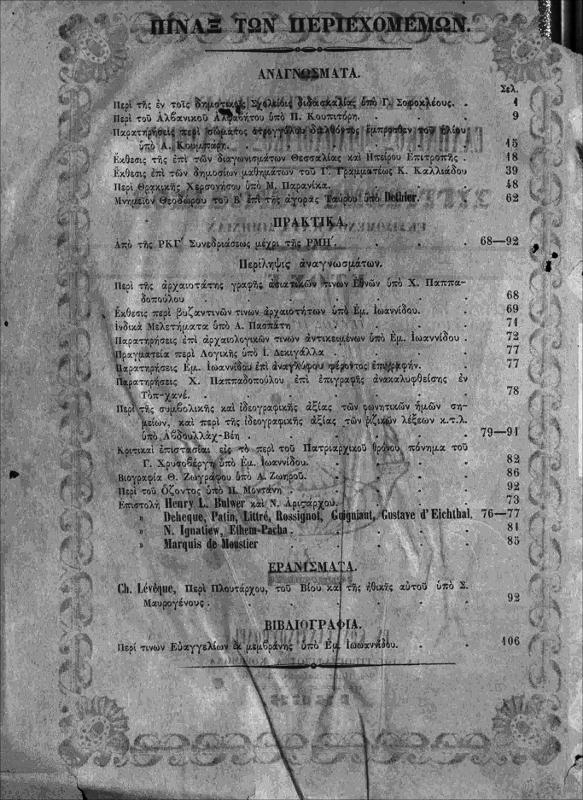 ΠΙΝΑΞ ΤΩΝ ΠΕΡΙΕΧΟΜΕΜΩΝ.
ΑΝΑΓΝΩΣΜΑΤΑ.
Σελ.
Περὶ τῆς ἐν τοῖς δημοτικοῖς Σχολείοις διδασκαλίας ὑπὸ Γ. Σοφοκλέους. . 1
Περὶ τοῦ Ἀλβανικοῦ Ἀλφαβήτου ὑπὸ Π. Κουπιτόρη. . . . 9
Παρατηρήσεις περὶ σώματος στρογγύλου διαλθόντος ἔμπροσθεν τοῦ Ἡλίου
ὑπὸ Α. Κουμπάρη. . . . . . . 15
Ἔκθεσις τῆς ἐπὶ τῶν διαγωνισμάτων Θεσσαλίας καὶ Ἠπείρου Ἐπιτροπῆς . 18
Ἔκθεσις ἐπὶ τῶν δημοσίων μαθημάτων τοῦ Γ΄. Γραμματέως Κ. Καλλιάδου 39
Περὶ Θρακικῆς Χερσονήσου ὑπὸ Μ. Παρανίκα. . . . 48
Μνημεῖον Θεοδώρου τοῦ Β΄ ἐπὶ τῆς ἀγορᾶς Ταύρου ὑπὸ Dethier. . 62
ΠΡΑΚΤΙΚΑ.
Ἀπὸ τῆς ΡΚΓ΄ Συνεδριάσεως μέχρι τῆς ΡΜΗ΄. . . . 68—92
Περίληψις ἀναγνωσμάτων.
Περὶ τῆς ἀρχαιοτάτης γραφῆς ἀσιατικῶν τινων Ἐθνῶν ὑπὸ Χ. Παππα-
δοπούλου . . . . . . . 68
Ἔκθεσις περὶ βυζαντινῶν τινων ἀρχαιοτήτων ὑπὸ Ἐμ. Ἰωαννίδου. . 69
Ἰνδικὰ Μελετήματα ὑπὸ Α. Πασπάτη . . . . 71
Παρατηρήσεις ἐπὶ ἀρχαιολογικῶν τινων ἀντικειμένων ὑπὸ Ἐμ. Ἰωαννίδου . 72
Πραγματεία περὶ Λογικῆς ὑπὸ Ι. Δεκιγάλλα . . . . 77
Παρατηρήσεις Ἐμ. Ἰωαννίδου ἐπὶ ἀναγλύφου φέροντος ἐπιγραφήν. . 77
Παρατηρήσεις Χ. Παππαδοπούλου ἐπὶ ἐπιγραφῆς ἀνακαλυφθείσης ἐν
Τὸπ-χανέ. . . . . . . 78
Περὶ τῆς συμβολικῆς καὶ ἰδεογραφικῆς ἀξίας τῶν φωνητικῶν ἡμῶν ση-
μείων, καὶ περὶ τῆς ἰδεογραφικῆς ἀξίας τῶν ῥιζικῶν λέξεων κ.τ.λ.
ὑπὸ Ἀβδουλλὰχ-Βέη . . . . . 79—91
Κριτικαὶ ἐπιστασίαι εἰς τὸ περὶ τοῦ Πατριαρχικοῦ θρόνου πόνημα τοῦ
Γ. Χρυσοβέργη ὑπὸ Ἐμ. Ἰωαννίδου. . . . . 82
Βιογραφία Θ. Ζωγράφου ὑπὸ Α. Ζωηροῦ. . . . 86
Περὶ τοῦ Ὄζοντος ὑπὸ Π. Μοντάνη . . . . 92
Ἐπιστολὴ Henry L. Bulwer καὶ Ν. Ἀριστάρχου. . . . 73
» Deheque, Patin, Littré, Rossignot, Guigniaut, Gustave d'Eichthal. 76—77
» N. Ignatiew, Ethem-Pacha . . . . . 81
» Marquis de Moustier . . . . . 85
ΕΡΑΝΙΣΜΑΤΑ.
Ch. Lévêque, Περὶ Πλουτάρχου, τοῦ Βίου καὶ τῆς ἠθικῆς αὐτοῦ ὑπὸ Σ.
Μαυρογένους . . . . . . . 92
ΒΙΒΛΙΟΓΡΑΦΙΑ.
Περὶ τινων Εὐαγγελίων ἐκ μεμβράνης ὑπὸ Ἐμ. Ἰωωαννίδου. . . 106